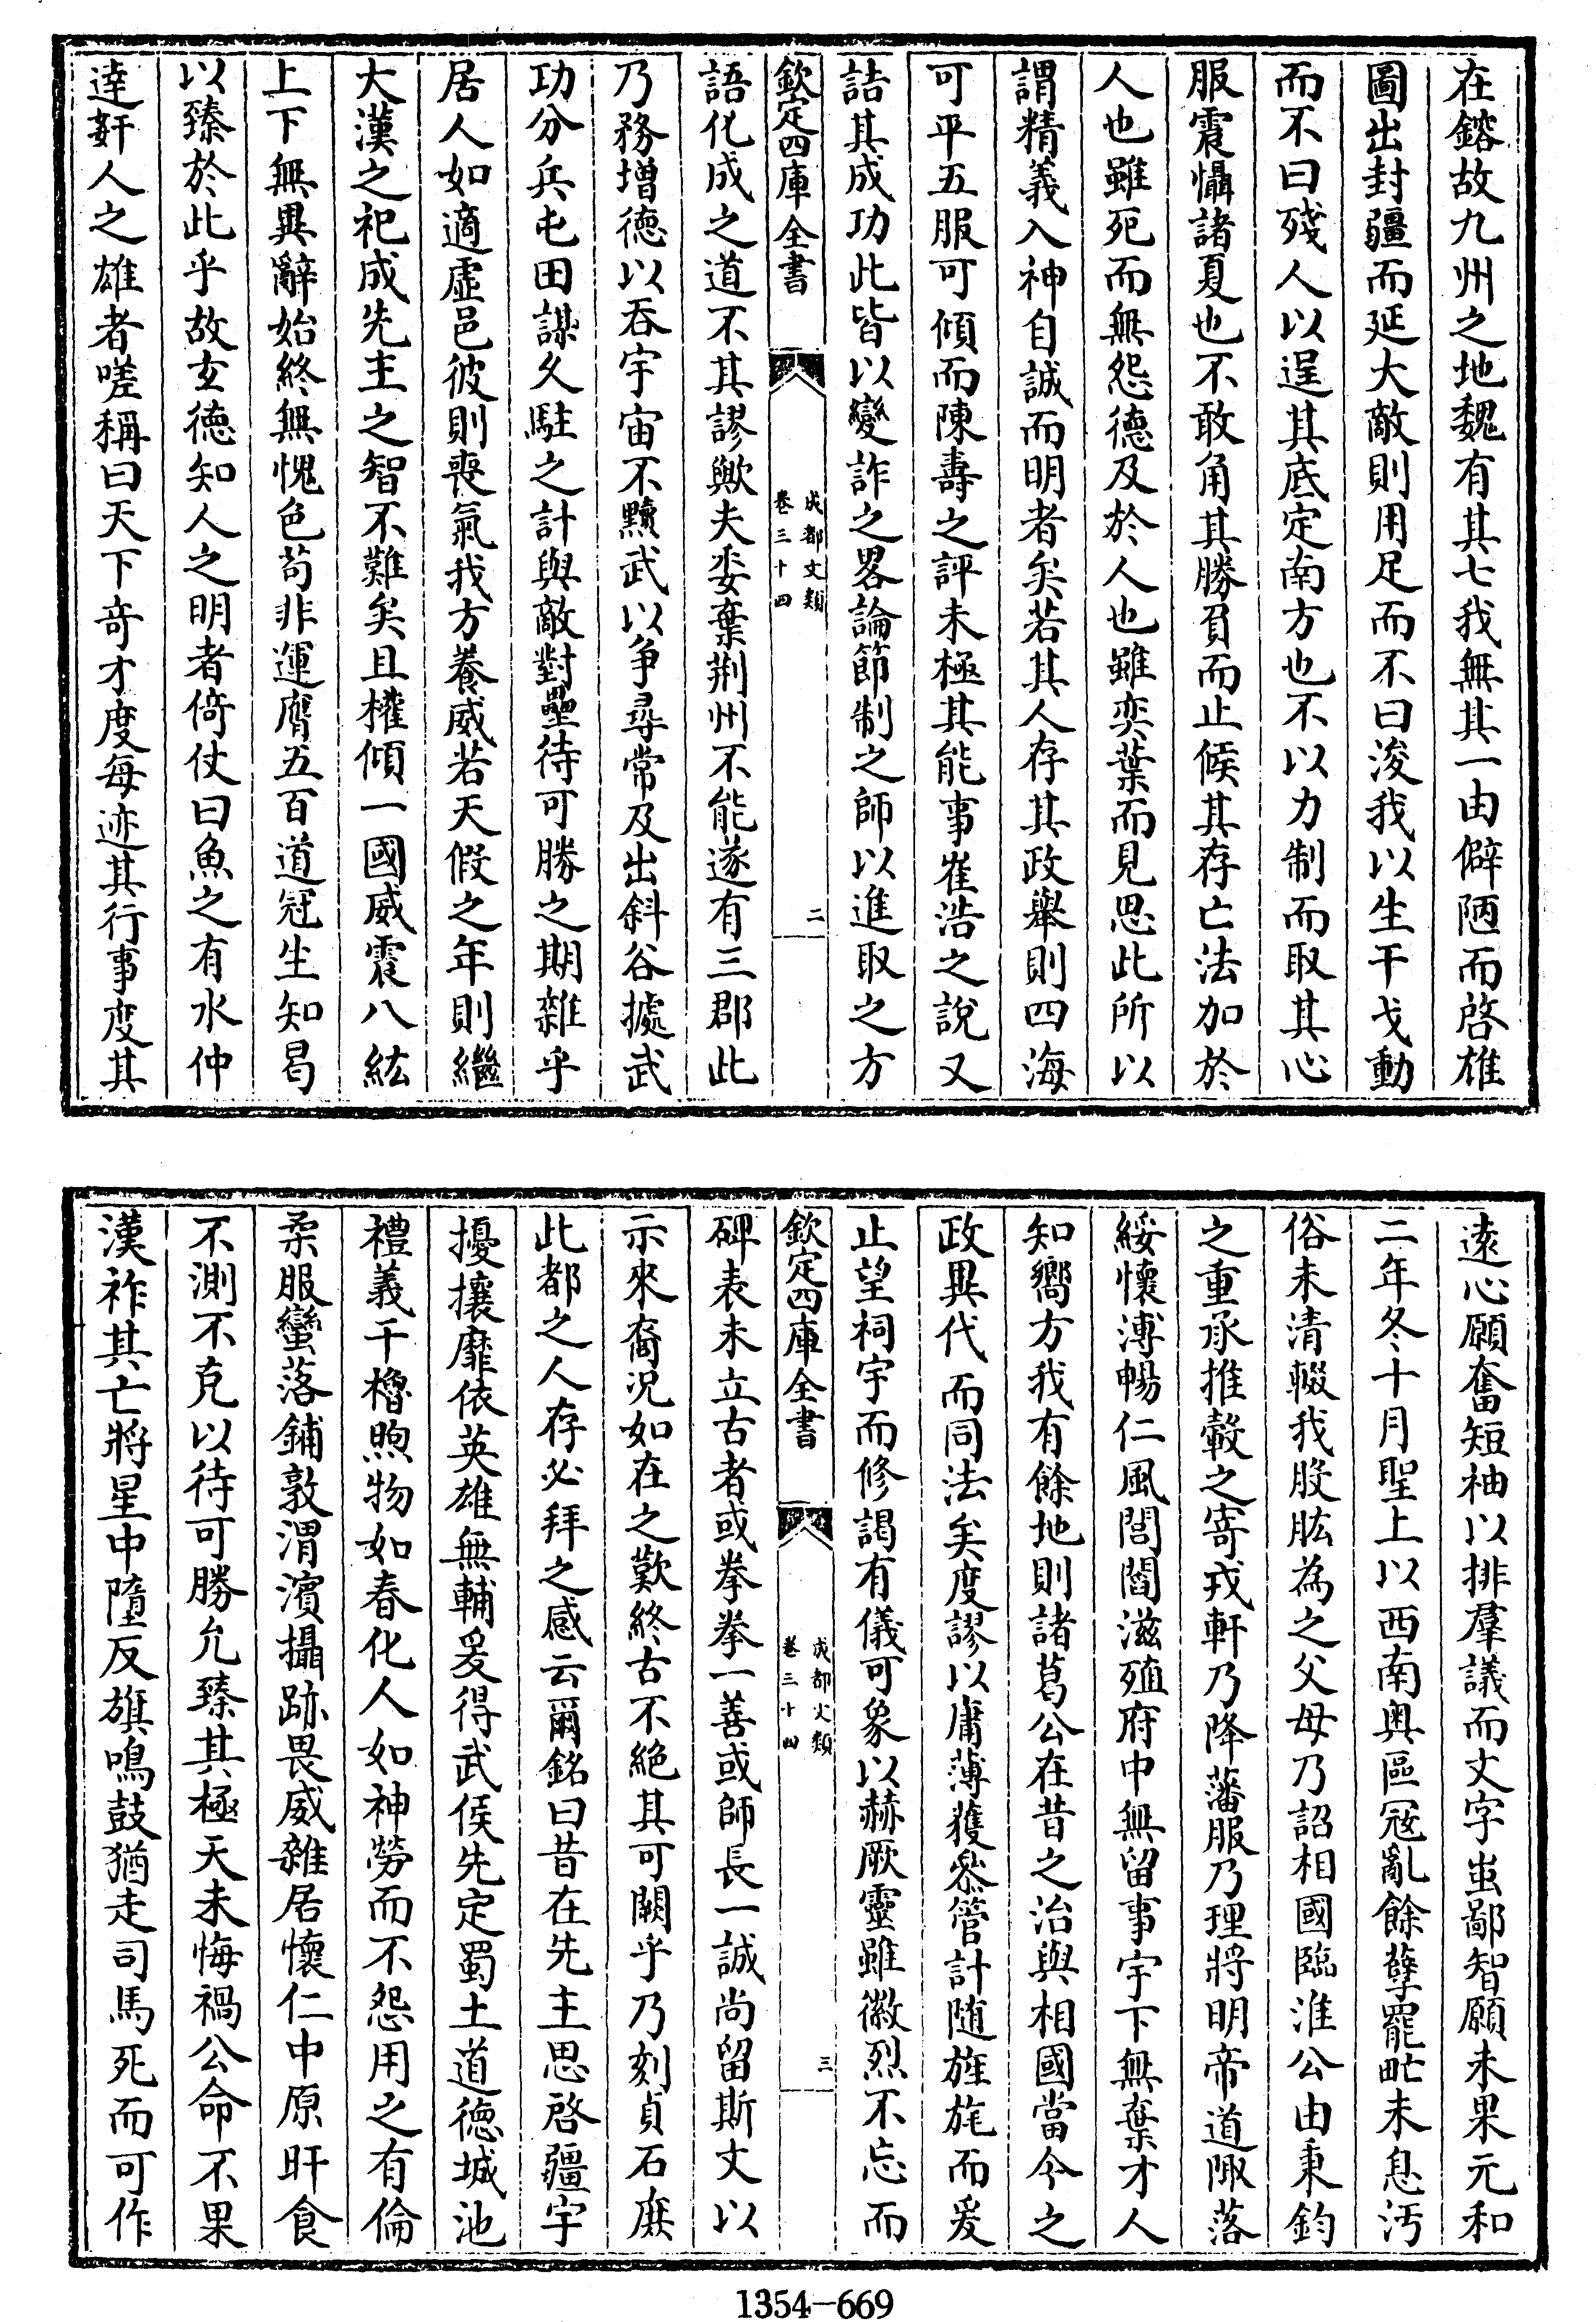 在鎔故九州之地魏有其七我無其一由僻陋而啓雄
圖出封疆而延大敵則用足而不曰浚我以生干戈動
而不曰殘人以逞其底定南方也不以力制而取其心
服震懾諸夏也不敢角其勝負而止候其存亡法加於
人也雖死而無怨德及於人也雖奕葉而見思此所以
謂精義入神自誠而明者矣若其人存其政舉則四海
可平五服可傾而陳壽之評未極其能事崔浩之說又
詰其成功此皆以變詐之畧論節制之師以進取之方
欽定四庫全書
成都文類
卷三十四
二
語化成之道不其謬歟夫委棄荆州不能遂有三郡此
乃務增德以吞宇宙不黷武以争尋常及出斜谷據武
功分兵屯田謀久駐之計與敵對壘待可勝之期雜乎
居人如適虛邑彼則喪氣我方養威若天假之年則繼
大漢之祀成先主之智不難矣且權傾一國威震八紘
上下無異辭始終無愧色苟非運膺五百道冠生知曷
以臻於此乎故玄德知人之明者倚仗曰魚之有水仲
達奸人之雄者嗟稱曰天下奇才度每迹其行事度其
遠心願奮短袖以排羣議而文字蚩鄙智願未果元和
二年冬十月聖上以西南奥區冦亂餘孽罷甿未息汚
俗未清輟我股肱為之父母乃詔相國臨淮公由秉鈞
之重承推轂之寄戎軒乃降藩服乃理將明帝道陬落
綏懷溥暢仁風閭閻滋殖府中無留事宇下無棄才人
知嚮方我有餘地則諸葛公在昔之治與相國當今之
政異代而同法矣度謬以庸薄獲叅管計随旌旄而爰
止望祠宇而修謁有儀可象以赫厥靈雖徽烈不忘而
欽定四庫全書
成都文類
卷三十四
三
碑表未立古者或拳拳一善或師長一誠尚留斯文以
示來裔况如在之歎終古不絶其可闕乎乃刻貞石庶
此都之人存必拜之感云爾銘曰昔在先主思啓疆宇
擾攘靡依英雄無輔爰得武侯先定蜀土道德城池
禮義干櫓煦物如春化人如神勞而不怨用之有倫
柔服蠻落鋪敦渭濱攝跡畏威雜居懷仁中原旰食
不測不克以待可勝允臻其極天未悔禍公命不果
漢祚其亡將星中隕反旗鳴鼓猶走司馬死而可作
1354—669